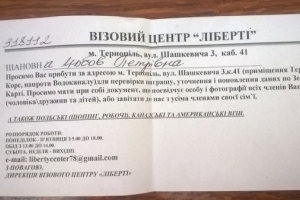 ВІЗОВИЙ ЦЕНТР “ЛІБЕРТІ”
318112
м. Тернопіль, вул. Шашкевича 3, каб. 41
ШАНОВН а Любов Петрівна
Просимо Вас прибути за адресою м. Тернопіль, вул. Шашкевича 3,к.41 (приміщення
Корс, напроти Водоканалу)для перевірки награту, уточнення і поновлення даних по
Карті. Просимо мати при собі документ, що посвідчує особу і фотографії всіх членів
(чоловік/дружина та дітей), або завітати до нас з усіма членами своєї сім'ї.
А ТАКОЖ ПОЛЬСЬКІ (ШОПІНГ, РОБОЧІ), КАНАДСЬКІ ТА АМЕРИКАНСЬКІ ВІЗИ.
РОЗПОРЯДОК РОБОТИ:
ПОНЕДІЛОК -П'ЯТНИЦЯ З 9.00 ДО 18.00.
ОБІД З 13.00 ДО 14.00.
СУБОТА, НЕДІЛЯ - ВИХІДНІ.
e-mail: libertycenter78@gmail.com
З ПОВАГОЮ,
ДИРЕКЦІЯ ВІЗОВОГО ЦЕНТРУ «ЛІБЕРТІ»